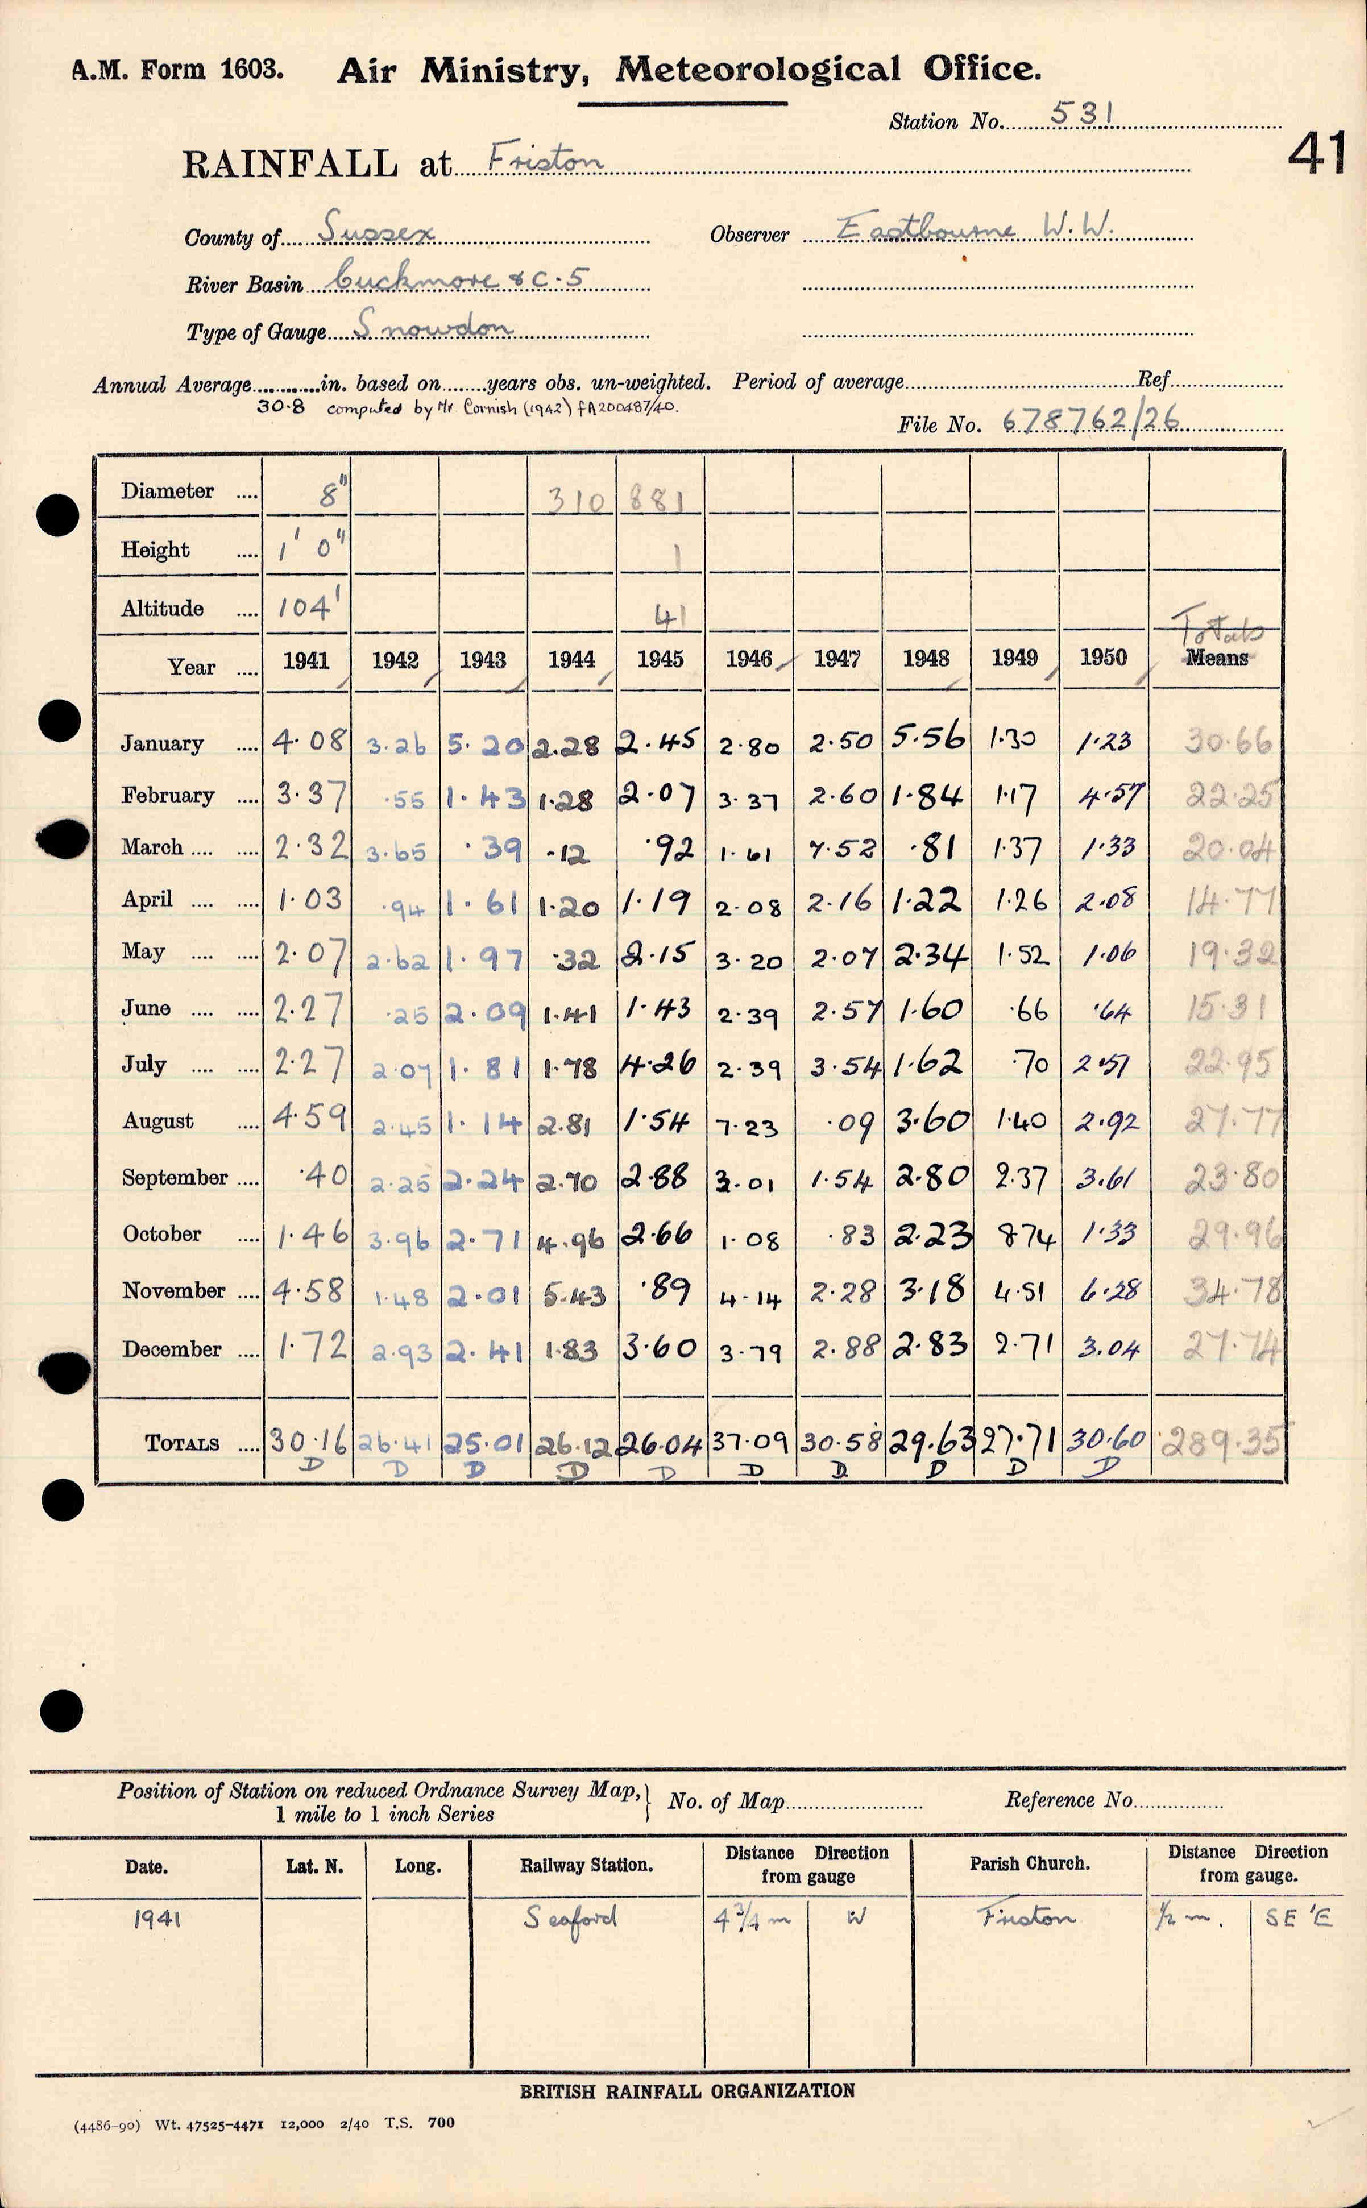 A.M. Form 1603. Air Ministry, Meteorological Office.
Station No. 531
41
RAINFALL at Friston
County of Sussex Observer Eastbourne W.W.
River Basin Cuckmore & C.5
Type of Gauge Snowdon
Annual Average in. based on years obs. un-weighted. Period of average Ref
30.8 computed by Mr Cornish (1942) fA200487/40.
File No. 678762/26
Diameter .... 8" 310 881
Height .... 1' 0" 1
Altitude .... 104' 41
Totals
Year .... 1941 1942 1943 1944 1945 1946 1947 1948 1949 1950 Means
January .... 4.08 3.26 5.20 2.28 2.45 2.80 2.50 5.56 1.30 1.23 30.66
February .... 3.37 .55 1.43 1.28 2.07 3.37 2.60 1.84 1.17 4.57 22.25
March .... .... 2.32 3.65 .39 .12 .92 1.61 7.52 .81 1.37 1.33 20.04
April .... .... 1.03 .94 1.61 1.20 1.19 2.08 2.16 1.22 1.26 2.08 14.77
May .... .... 2.07 2.62 1.97 .32 2.15 3.20 2.07 2.34 1.52 1.06 19.32
June .... .... 2.27 .25 2.09 1.41 1.43 2.39 2.57 1.60 .66 .64 15.31
July .... .... 2.27 2.07 1.81 1.78 4.26 2.39 3.54 1.62 .70 2.51 22.95
August .... 4.59 2.45 1.14 2.81 1.54 7.23 .09 3.60 1.40 2.92 27.77
September .... .40 2.25 2.24 2.70 2.88 3.01 1.54 2.80 2.37 3.61 23.80
October .... 1.46 3.96 2.71 4.96 2.66 1.08 .83 2.23 8.74 1.33 29.96
November .... 4.58 1.48 2.01 5.43 .89 4.14 2.28 3.18 4.51 6.28 34.78
December .... 1.72 2.93 2.41 1.83 3.60 3.79 2.88 2.83 2.71 3.04 27.74
TOTALS .... 30.16 26.41 25.01 26.12 26.04 37.09 30.58 29.63 27.71 30.60 289.35
D D D D D D D D D D
Position of Station on reduced Ordnance Survey Map, } No. of Map Reference No.
1 mile to 1 inch Series
Date. Lat. N. Long. Railway Station. Distance Direction from gauge Parish Church. Distance Direction from gauge.
1941 Seaford 4 3/4 m W Friston 1/2 m. SE 'E
BRITISH RAINFALL ORGANIZATION
(4486-90) Wt. 47525-4471 12,000 2/40 T.S. 700